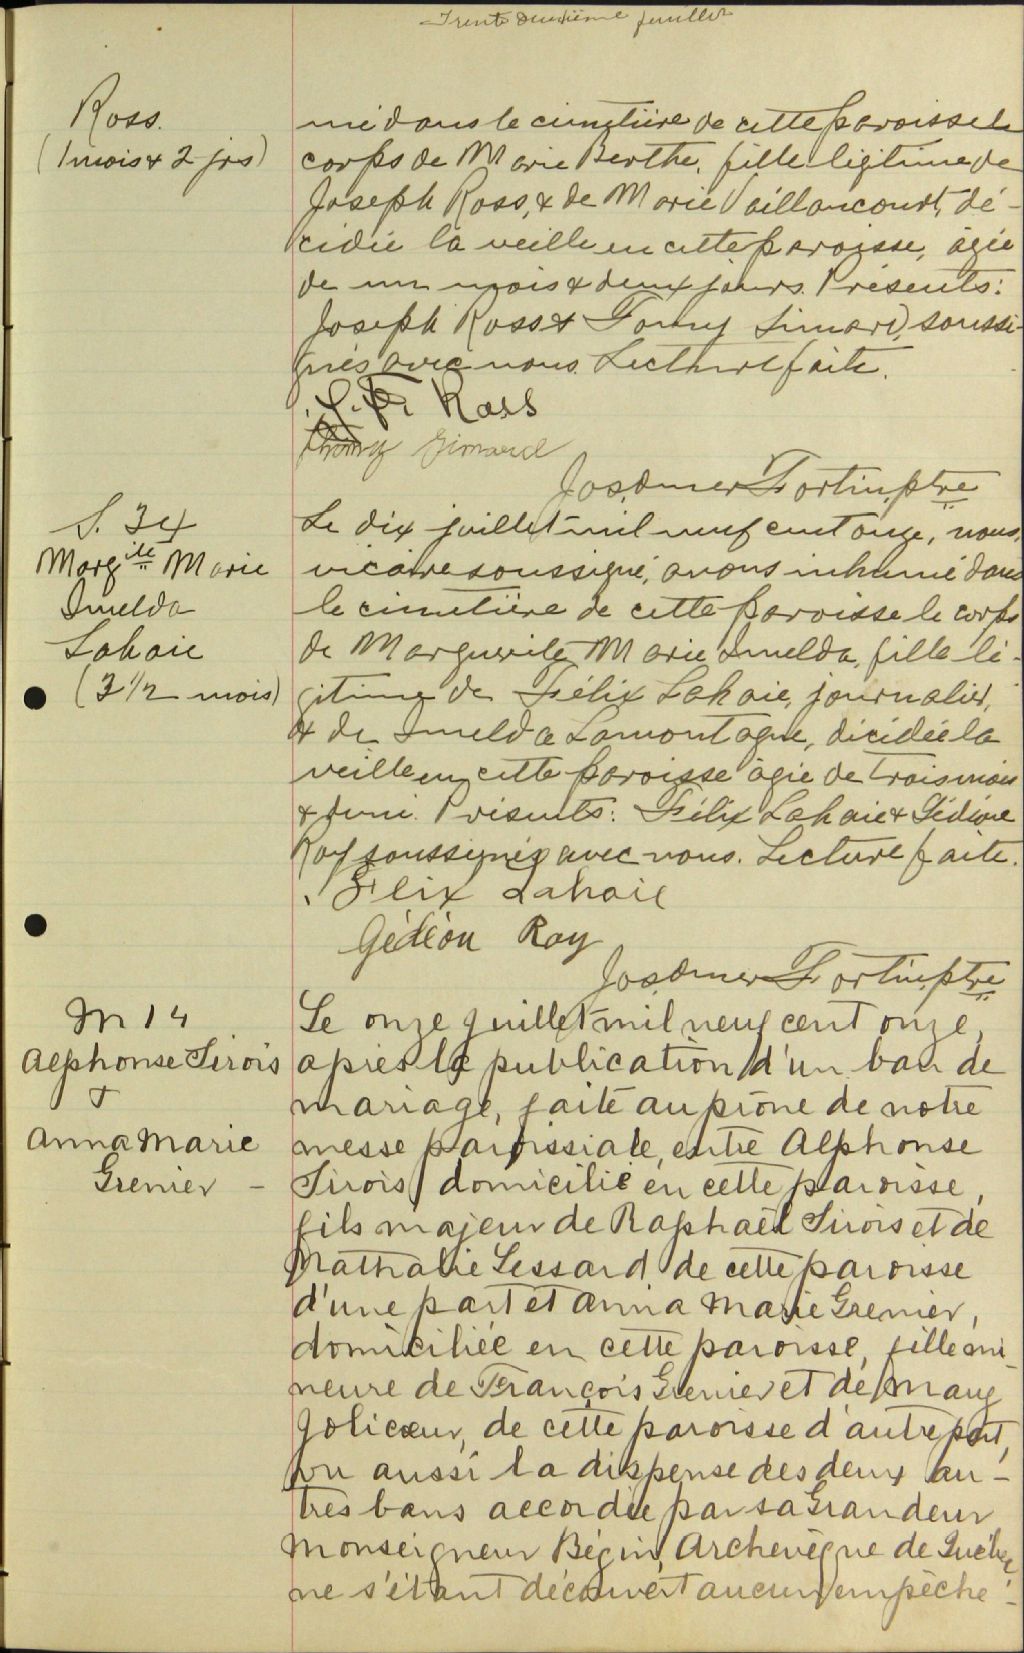 Trente deuxième feuillet
Ross.
(1 mois & 2 jrs)
mé dans le cimetière de cette paroisse le
corps de Marie Berthe, fille légitime de
Joseph Ross, & de Marie Vaillancourt, dé-
cédée la veille en cette paroisse, âgée
de un mois & deux jours. Présents:
Joseph Ross & Tommy Simard, soussi-
gnés avec nous. Lecture faite.
Ross
Simard
Jos. Omer Fortin, ptre
S. 34
Margite Marie
Imelda
Lahaie
(3 1/2 mois)
Le dix juillet mil neuf cent onze, nous,
vicaire soussigné, avons inhumé dans
le cimetière de cette paroisse le corps
de Marguerite Marie Imelda, fille lé-
gitime de Félix Lahaie, journalier,
& de Imelda Lamontagne, décédée la
veille en cette paroisse âgée de trois mois
& demi. Présents: Félix Lahaie & Gédéon
Roy soussignés avec nous. Lecture faite.
Félix Lahaie
Gédéon Roy
Jos. Omer Fortin, ptre
M 14
Alphonse Sirois
&
Anna Marie
Grenier -
Le onze juillet mil neuf cent onze,
après la publication d'un ban de
mariage, faite au prône de notre
messe paroissiale, entre Alphonse
Sirois domicilié en cette paroisse,
fils majeur de Raphaël Sirois et de
Nathalie Lessard de cette paroisse
d'une part et Anna Marie Grenier,
domiciliée en cette paroisse, fille mi-
neure de François Grenier et de Mary
Jolicoeur, de cette paroisse d'autre part,
vu aussi la dispense des deux au-
tres bans accordée par sa Grandeur
Monseigneur Bégin, Archevêque de Québec,
ne s'étant découvert aucun empêche-